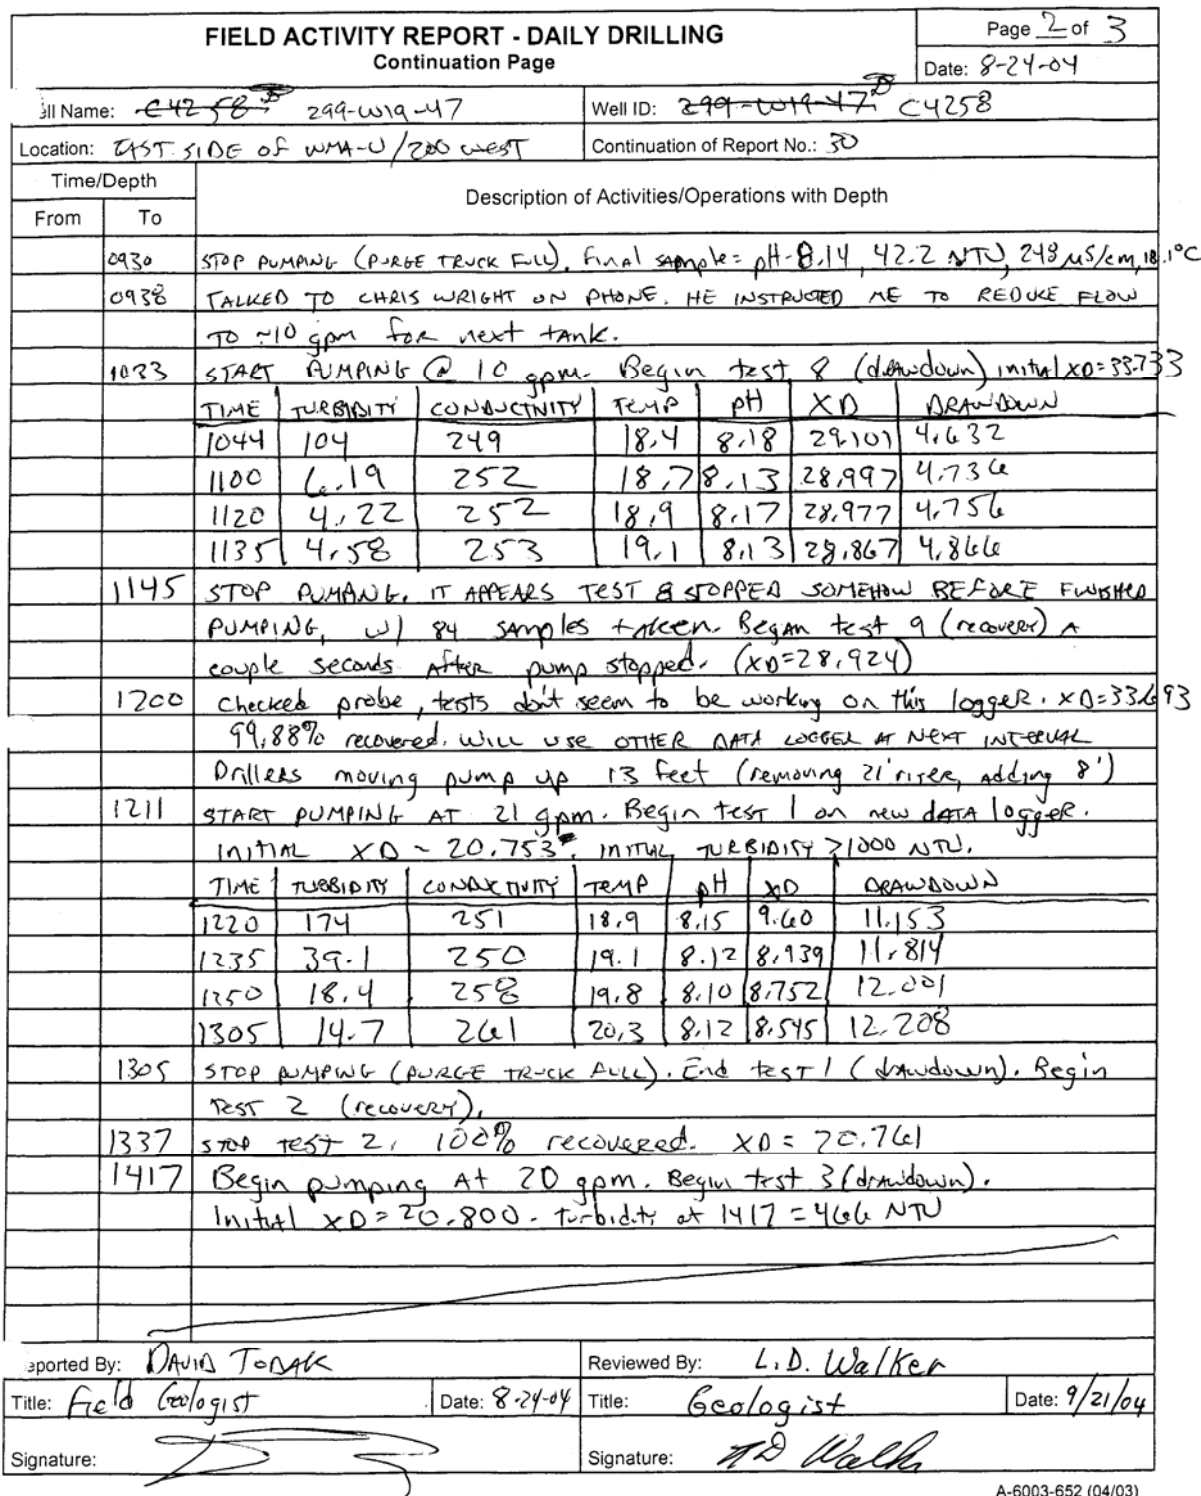 FIELD ACTIVITY REPORT - DAILY DRILLING
Continuation Page
Page 2 of 3
Date: 8-24-04
ell Name: C4258 299-W19-47
Well ID: 299-W19-47 C4258
Location: EAST SIDE OF WMA-U/200 WEST
Continuation of Report No.: 30
Time/Depth
From To
Description of Activities/Operations with Depth
0930 STOP PUMPING (PURGE TRUCK FULL). Final sample= pH-8.14, 42.2 NTU, 248 µS/cm, 18.1°C
0938 TALKED TO CHRIS WRIGHT ON PHONE. HE INSTRUCTED ME TO REDUCE FLOW
TO ~10 gpm for next tank.
1023 START PUMPING @ 10 gpm. Begin test 8 (drawdown) initial XD=33.733
TIME TURBIDITY CONDUCTIVITY TEMP pH XD DRAWDOWN
1044 104 249 18.4 8.18 29.101 4.632
1100 6.19 252 18.7 8.13 28.997 4.736
1120 4.22 252 18.9 8.17 28.977 4.756
1135 4.58 253 19.1 8.13 28.867 4.866
1145 STOP PUMPING. IT APPEARS TEST 8 STOPPED SOMEHOW BEFORE FINISHED
PUMPING, W/ 84 samples taken. Began test 9 (recovery) A
couple seconds After pump stopped. (XD=28.924)
1200 Checked probe, tests don't seem to be working on this logger. XD=33.693
99.88% recovered. WILL USE OTHER DATA LOGGER AT NEXT INTERVAL
Drillers moving pump up 13 feet (removing 21' riser, adding 8')
1211 START PUMPING AT 21 gpm. Begin test 1 on new data logger.
INITIAL XD ~ 20.753. INITIAL TURBIDITY >1000 NTU.
TIME TURBIDITY CONDUCTIVITY TEMP pH XD DRAWDOWN
1220 174 251 18.9 8.15 9.60 11.153
1235 39.1 250 19.1 8.12 8.939 11.814
1250 18.4 258 19.8 8.10 8.752 12.001
1305 14.7 261 20.3 8.12 8.545 12.208
1305 STOP PUMPING (PURGE TRUCK FULL). End test 1 (drawdown). Begin
TEST 2 (recovery).
1337 STOP TEST 2. 100% recovered. XD = 20.761
1417 Begin pumping At 20 gpm. Begin test 3 (drawdown).
Initial XD=20.800. turbidity at 1417 = 466 NTU
eported By: DAVID TODAK
Reviewed By: L.D. Walker
Title: Field Geologist Date: 8-24-04
Title: Geologist Date: 9/21/04
Signature:
Signature: LD Walker
A-6003-652 (04/03)